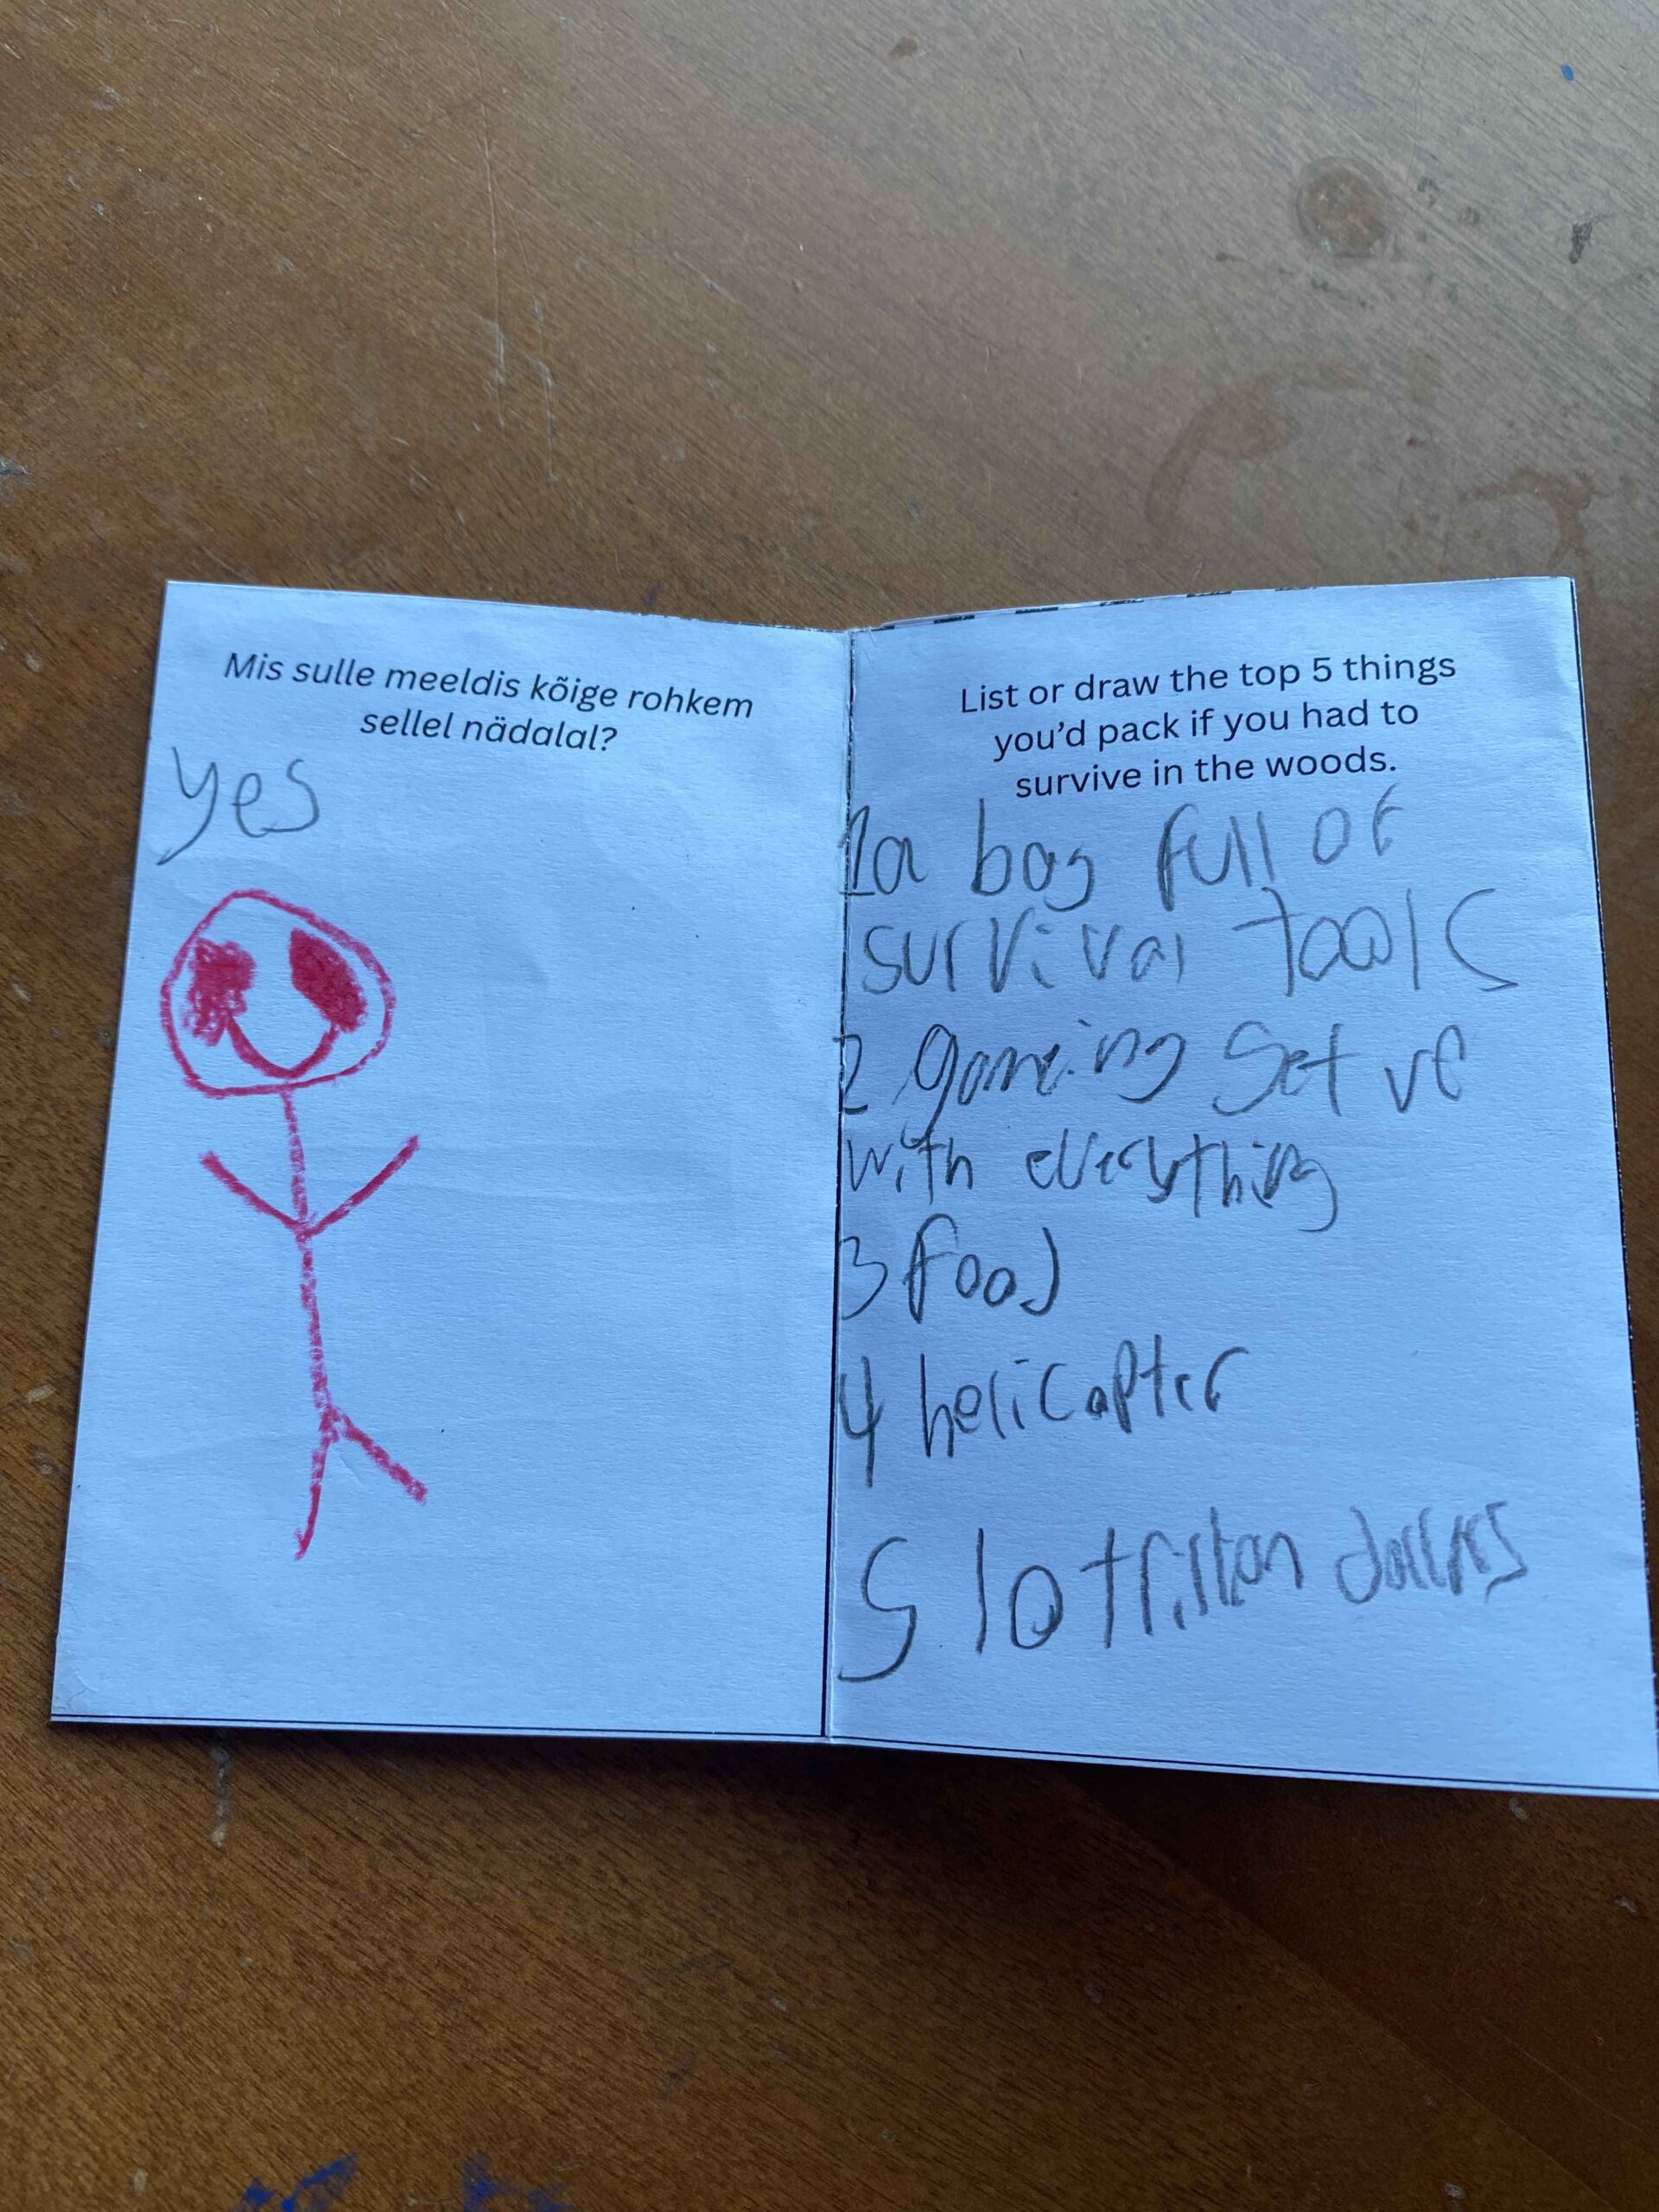 Mis sulle meeldis kõige rohkem
sellel nädalal?
yes
List or draw the top 5 things
you'd pack if you had to
survive in the woods.
1 a bag full of
survival tools
2 gameing set up
with everything
3 food
4 helicopter
5 10 trillion dollers